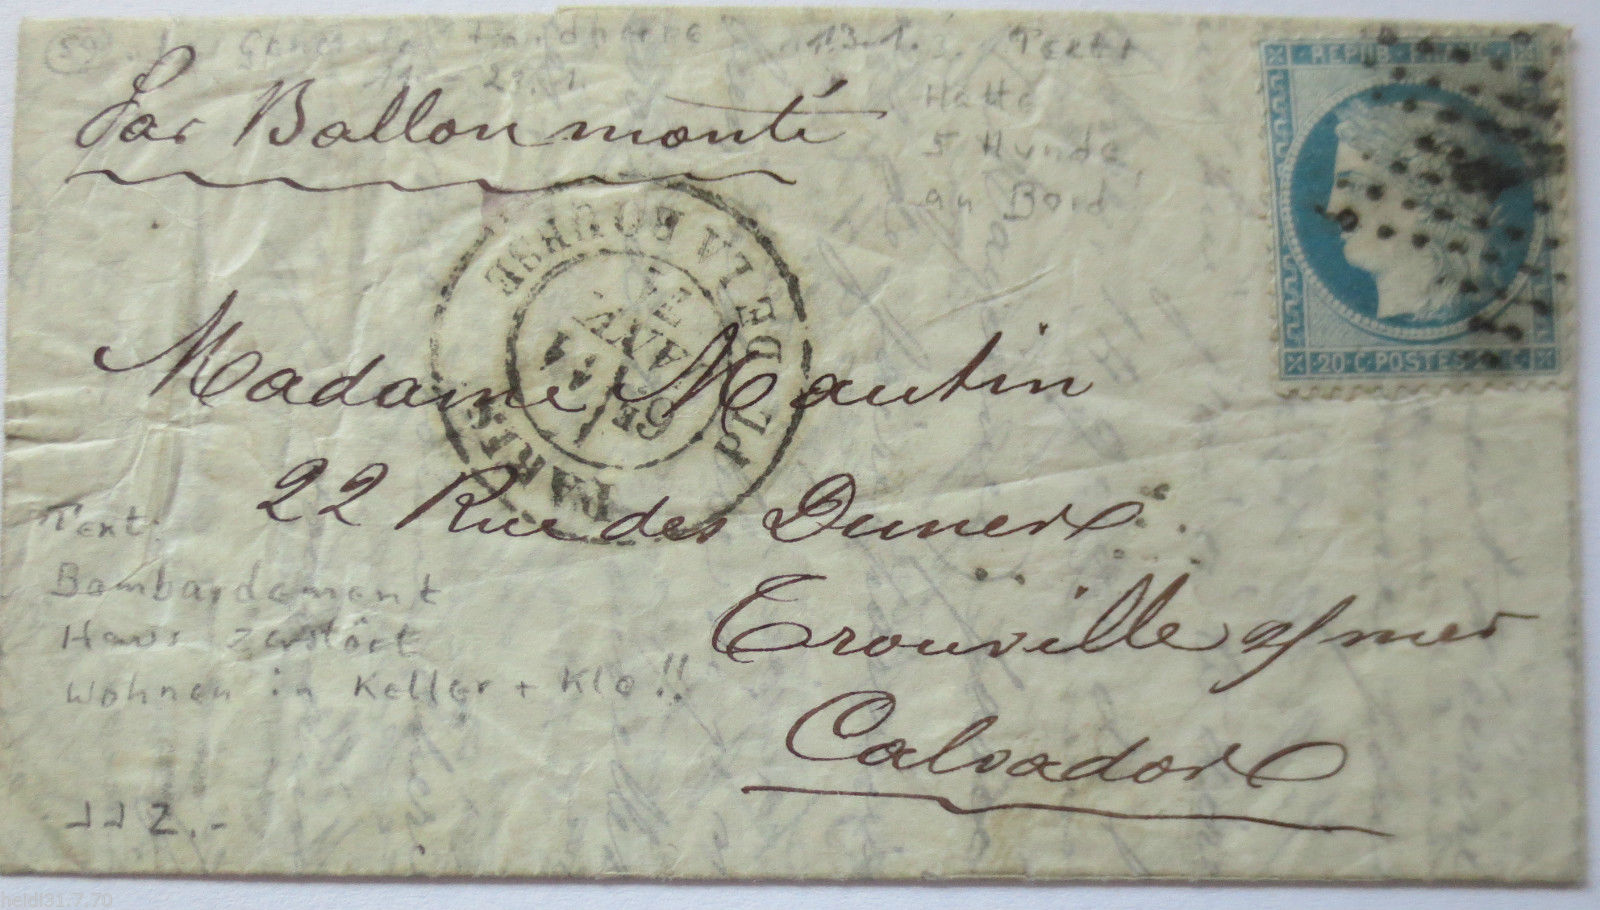 59 General Faidherbe 13.1. Text:
Hatte
5 Hunde
an Bord
Par Ballon monté
REPUB FRANC
20 C POSTES 20 C
PARIS PL. DE LA BOURSE
6E
11
JANV.
71
Madame Mautin
22 Rue des Dunes
Trouville s/mer
Calvados
Text:
Bombardement
Haus zerstört
Wohnen in Keller + Klo!!
112.-
heidi31.7.70